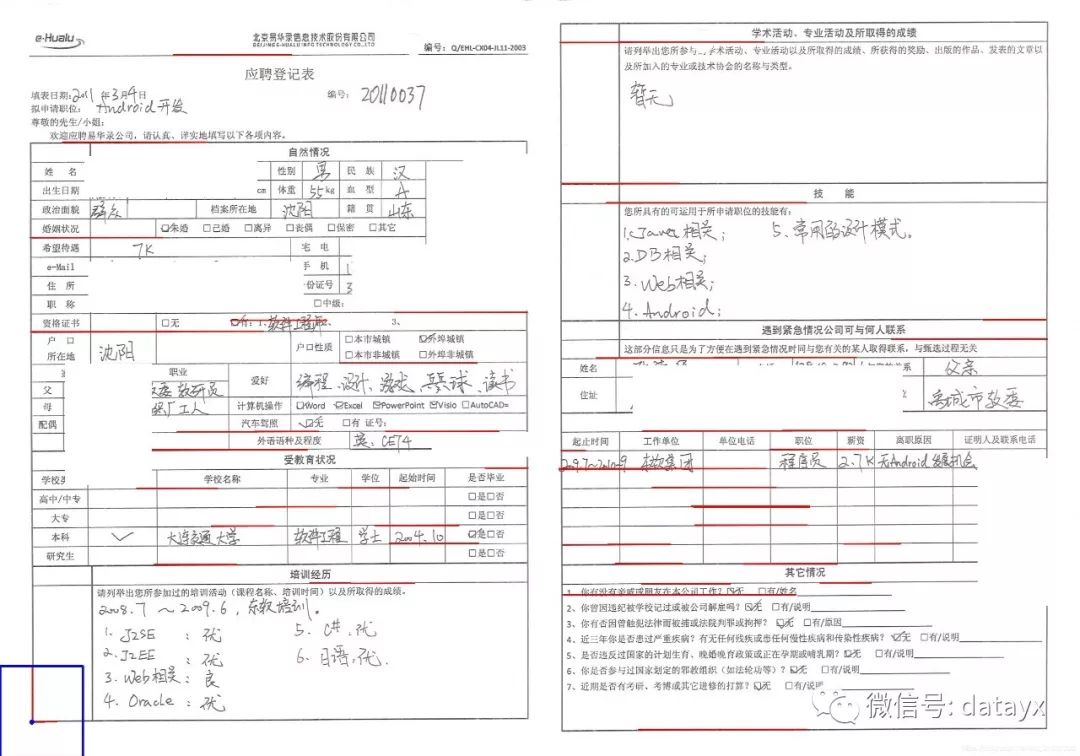 e-Hualu
北京易华录信息技术股份有限公司
BEIJING E-HUALU INFO TECHNOLOGY CO.,LTD
编号: Q/EHL-CX04-JL11-2003
应聘登记表
填表日期: 2011 年 3月 4日
编号: 20110037
拟申请职位: Android 开发
尊敬的先生/小姐:
欢迎应聘易华录公司，请认真、详实地填写以下各项内容。
自然情况
姓 名 性别 男 民 族 汉
出生日期 cm 体重 55kg 血 型 A
政治面貌 群众 档案所在地 沈阳 籍 贯 山东
婚姻状况 ☑未婚 □已婚 □离异 □丧偶 □保密 □其它
希望待遇 7K 宅 电
e-Mail 手 机 1
住 所 份证号 3
职 称 □中级:
资格证书 □无 ☑有: 1、软件工程师2、 3、
户 口
所在地 沈阳 户口性质 □本市城镇 ☑外埠城镇
□本市非城镇 □外埠非城镇
职业
父 教委 教研员 爱好 编程、设计、游戏、乒乓球、读书
母 厂工人 计算机操作 □Word ☑Excel ☑PowerPoint ☑Visio □AutoCAD
配偶 汽车驾照 ☑无 □有 证号:
外语语种及程度 英: CET4
受教育状况
学校名称 专业 学位 起始时间 是否毕业
高中/中专 □是□否
大专 □是□否
本科 ✓ 大连交通大学 软件工程 学士 2004.10 ☑是□否
研究生 □是□否
培训经历
请列举出您所参加过的培训活动（课程名称、培训时间）以及所取得的成绩。
2008.7 ～2009.6，东软培训。
1. J2SE : 优 5. C#, 优
2. J2EE : 优 6. 日语, 优.
3. Web相关 : 良
4. Oracle : 优
学术活动、专业活动及所取得的成绩
请列举出您所参与 学术活动、专业活动以及所取得的成绩、所获得的奖励、出版的作品、发表的文章以
及所加入的专业或技术协会的名称与类型。
暂无
技 能
您所具有的可运用于所申请职位的技能有:
1. Java 相关; 5. 常用的设计模式。
2. DB相关;
3. Web相关;
4. Android;
遇到紧急情况公司可与何人联系
这部分信息只是为了方便在遇到紧急情况时间与您有关的某人取得联系，与甄选过程无关
姓名 系 父亲
住址 禹城市教委
起止时间 工作单位 单位电话 职位 薪资 离职原因 证明人及联系电话
2009.7~2010.9 东软集团 程序员 2.7K 无Android发展机会
其它情况
1、你有没有亲戚或朋友在本公司工作? ☑无 □有/姓名
2、你曾因违纪被学校记过或被公司解雇吗? ☑无 □有/说明
3、你有否因曾触犯法律而被捕或法院判罪或拘押? ☑无 □有/原因
4、近三年你是否患过严重疾病? 有无任何残疾或患任何慢性疾病和传染性疾病? ☑无 □有/说明
5、是否违反过国家的计划生育、晚婚晚育政策或正在孕期或哺乳期? ☑无 □有/说明
6、你是否参与过国家划定的邪教组织（如法轮功等）? ☑无 □有/说明
7、近期是否有考研、考博或其它进修的打算? ☑无 □有/说明
微信号: datayx